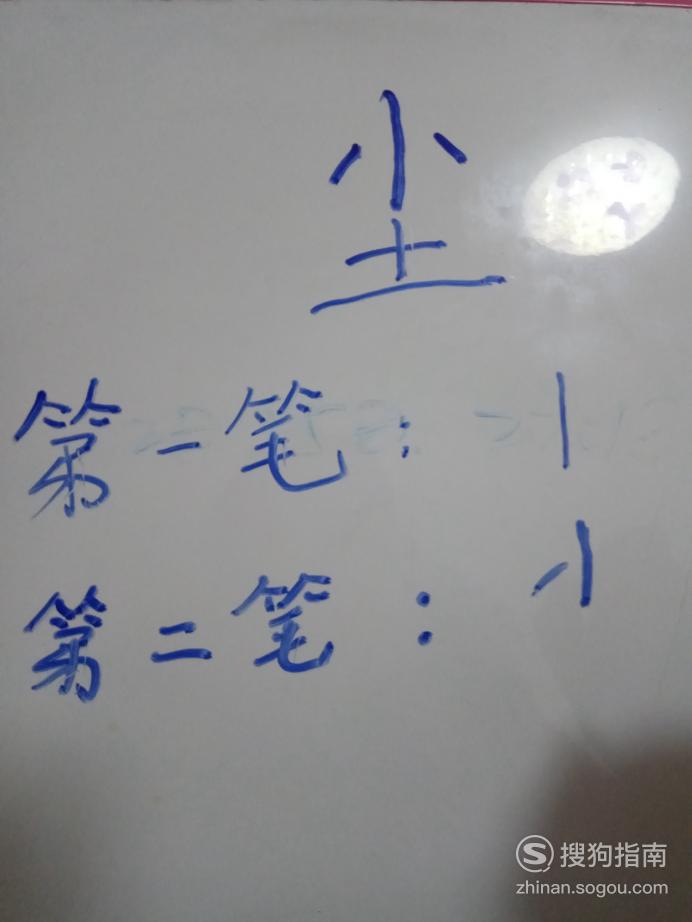 尘
第一笔：丨
第二笔：小
搜狗指南
zhinan.sogou.com